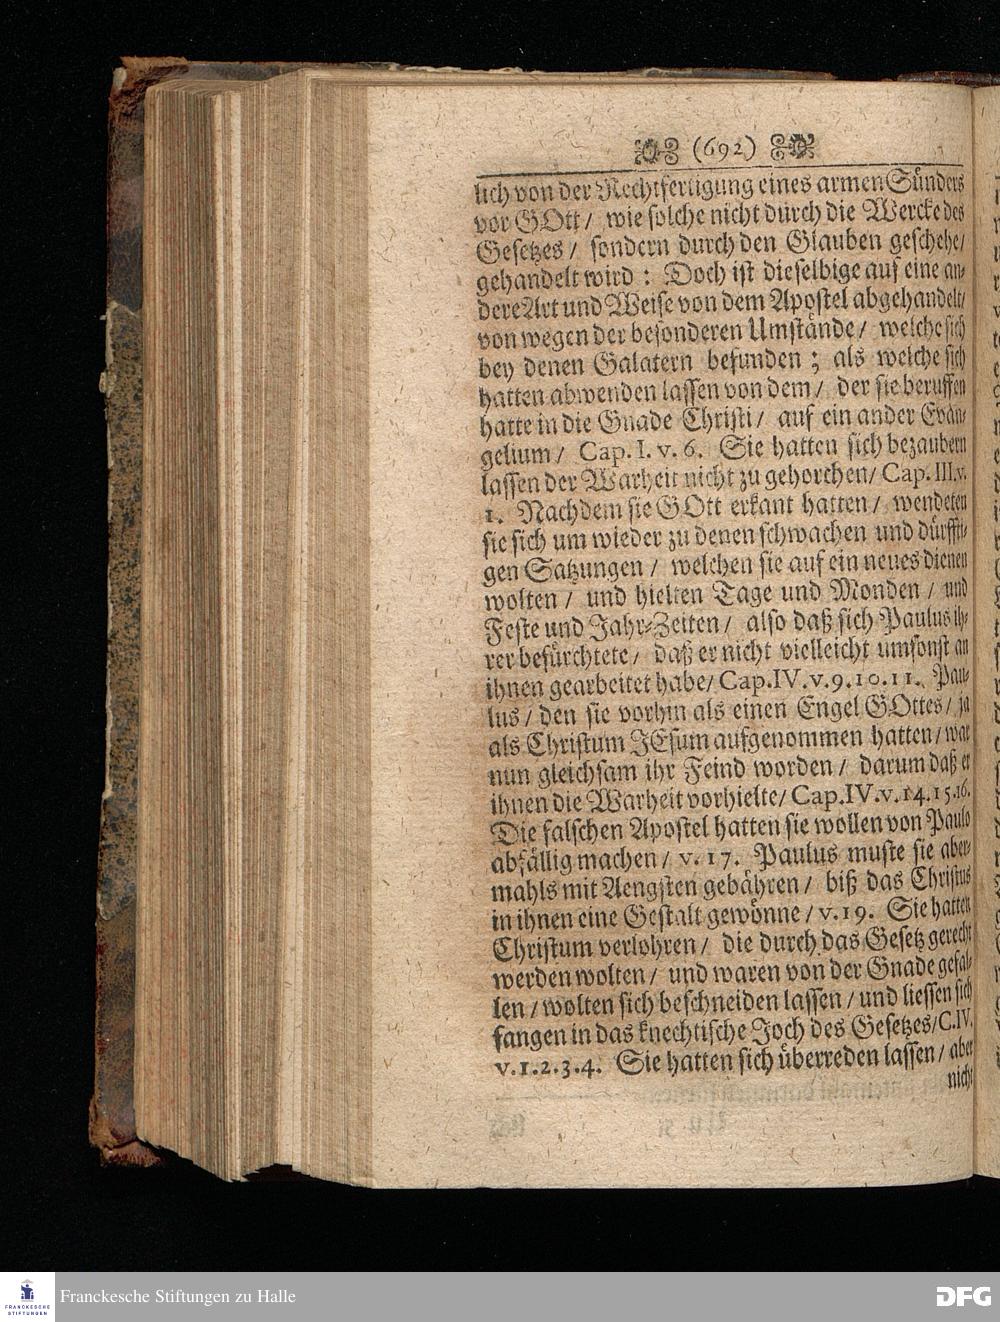 (692)
lich von der Rechtfertigung eines armen Sünders
vor GOtt / wie solche nicht durch die Wercke des
Gesetzes / sondern durch den Glauben geschehe /
gehandelt wird : Doch ist dieselbige auf eine an-
dere Art und Weise von dem Apostel abgehandelt /
von wegen der besonderen Umstände / welche sich
bey denen Galatern befunden ; als welche sich
hatten abwenden lassen von dem / der sie beruffen
hatte in die Gnade Christi / auf ein ander Evan-
gelium / Cap. I. v. 6. Sie hatten sich bezaubern
lassen der Warheit nicht zu gehorchen / Cap. III. v.
1. Nachdem sie GOtt erkant hatten / wendeten
sie sich um wieder zu denen schwachen und dürffti-
gen Satzungen / welchen sie auf ein neues dienen
wolten / und hielten Tage und Monden / und
Feste und Jahr-Zeiten / also daß sich Paulus ih-
rer befürchtete / daß er nicht vielleicht umsonst an
ihnen gearbeitet habe / Cap. IV. v. 9. 10. 11. Pau-
lus / den sie vorhin als einen Engel GOttes / ja
als Christum JEsum aufgenommen hatten / war
nun gleichsam ihr Feind worden / darum daß er
ihnen die Warheit vorhielte / Cap. IV. v. 14. 15. 16.
Die falschen Apostel hatten sie wollen von Paulo
abfällig machen / v. 17. Paulus muste sie aber-
mahls mit Aengsten gebähren / biß das Christus
in ihnen eine Gestalt gewönne / v. 19. Sie hatten
Christum verlohren / die durch das Gesetz gerecht
werden wolten / und waren von der Gnade gefal-
len / wolten sich beschneiden lassen / und liessen sich
fangen in das knechtische Joch des Gesetzes / C. IV.
v. 1. 2. 3. 4. Sie hatten sich überreden lassen / aber
nicht
Franckesche Stiftungen zu Halle
FRANCKESCHE
STIFTUNGEN
DFG